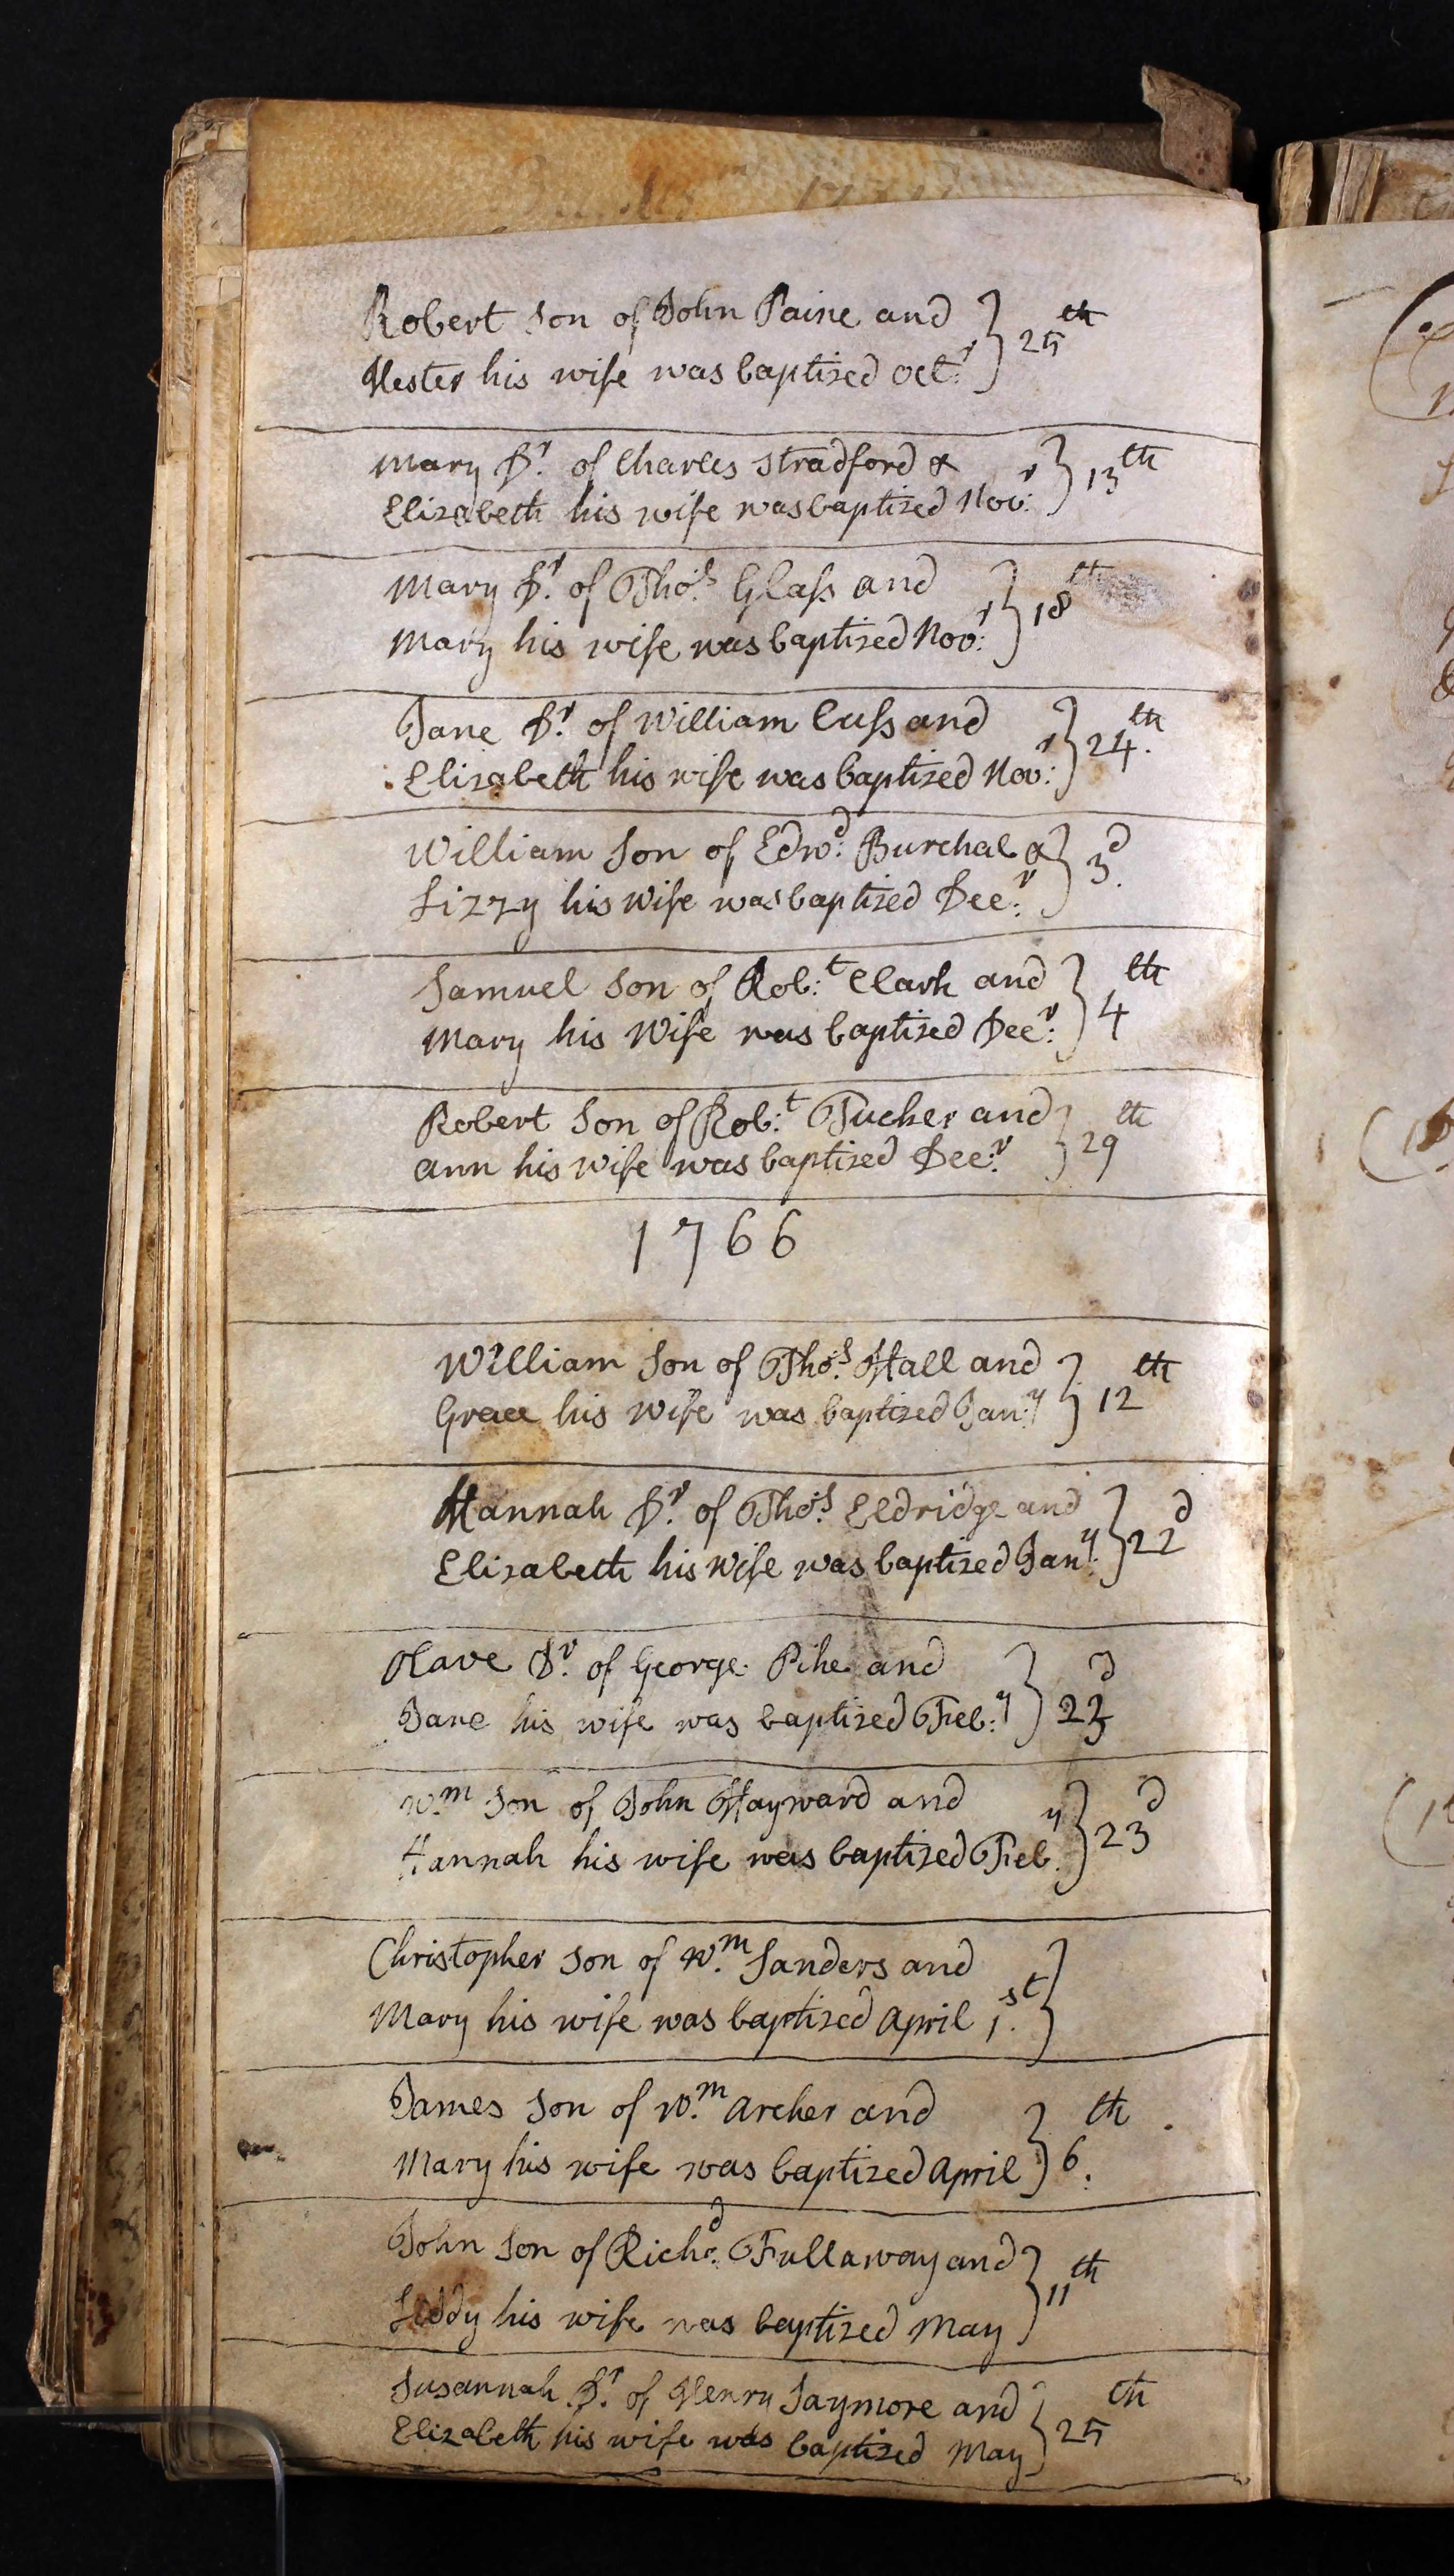 Robert Son of John Paine and } 25th
Hester his wife was baptized Oct:r
Mary Dr. of Charles Stradford & } 13th
Elizabeth his wife was baptized Nov:r
Mary Dr. of Tho:s Glass and } 18th
Mary his wife was baptized Nov:r
Jane Dr. of William Cuss and } 24th.
Elizabeth his wife was baptized Nov:r
William Son of Edw:d Burchal & } 3d.
Lizzy his Wife was baptized Dec:r
Samuel Son of Rob:t Clark and } 4th
Mary his Wife was baptized Dec:r
Robert Son of Rob:t Tucker and } 29th
Ann his Wife was baptized Dec:r
1766
William Son of Tho:s Hall and } 12th
Grace his Wife was baptized Jan:y
Hannah Dr. of Tho:s Eldridge and } 22d
Elizabeth his Wife was baptized Jan:y
Olave Dr. of George Pike and } 23d
Jane his wife was baptized Feb:y
W.m Son of John Hayward and } 23d
Hannah his wife was baptized Feb.y
Christopher Son of W.m Sanders and }
Mary his wife was baptized April 1.st
James Son of W.m Archer and } 6.th
Mary his wife was baptized April
John Son of Rich:d Fullaway and } 11th
his wife was baptized May
Susannah Dr. of Henry Saymore and } 25th
Elizabeth his wife was baptized May